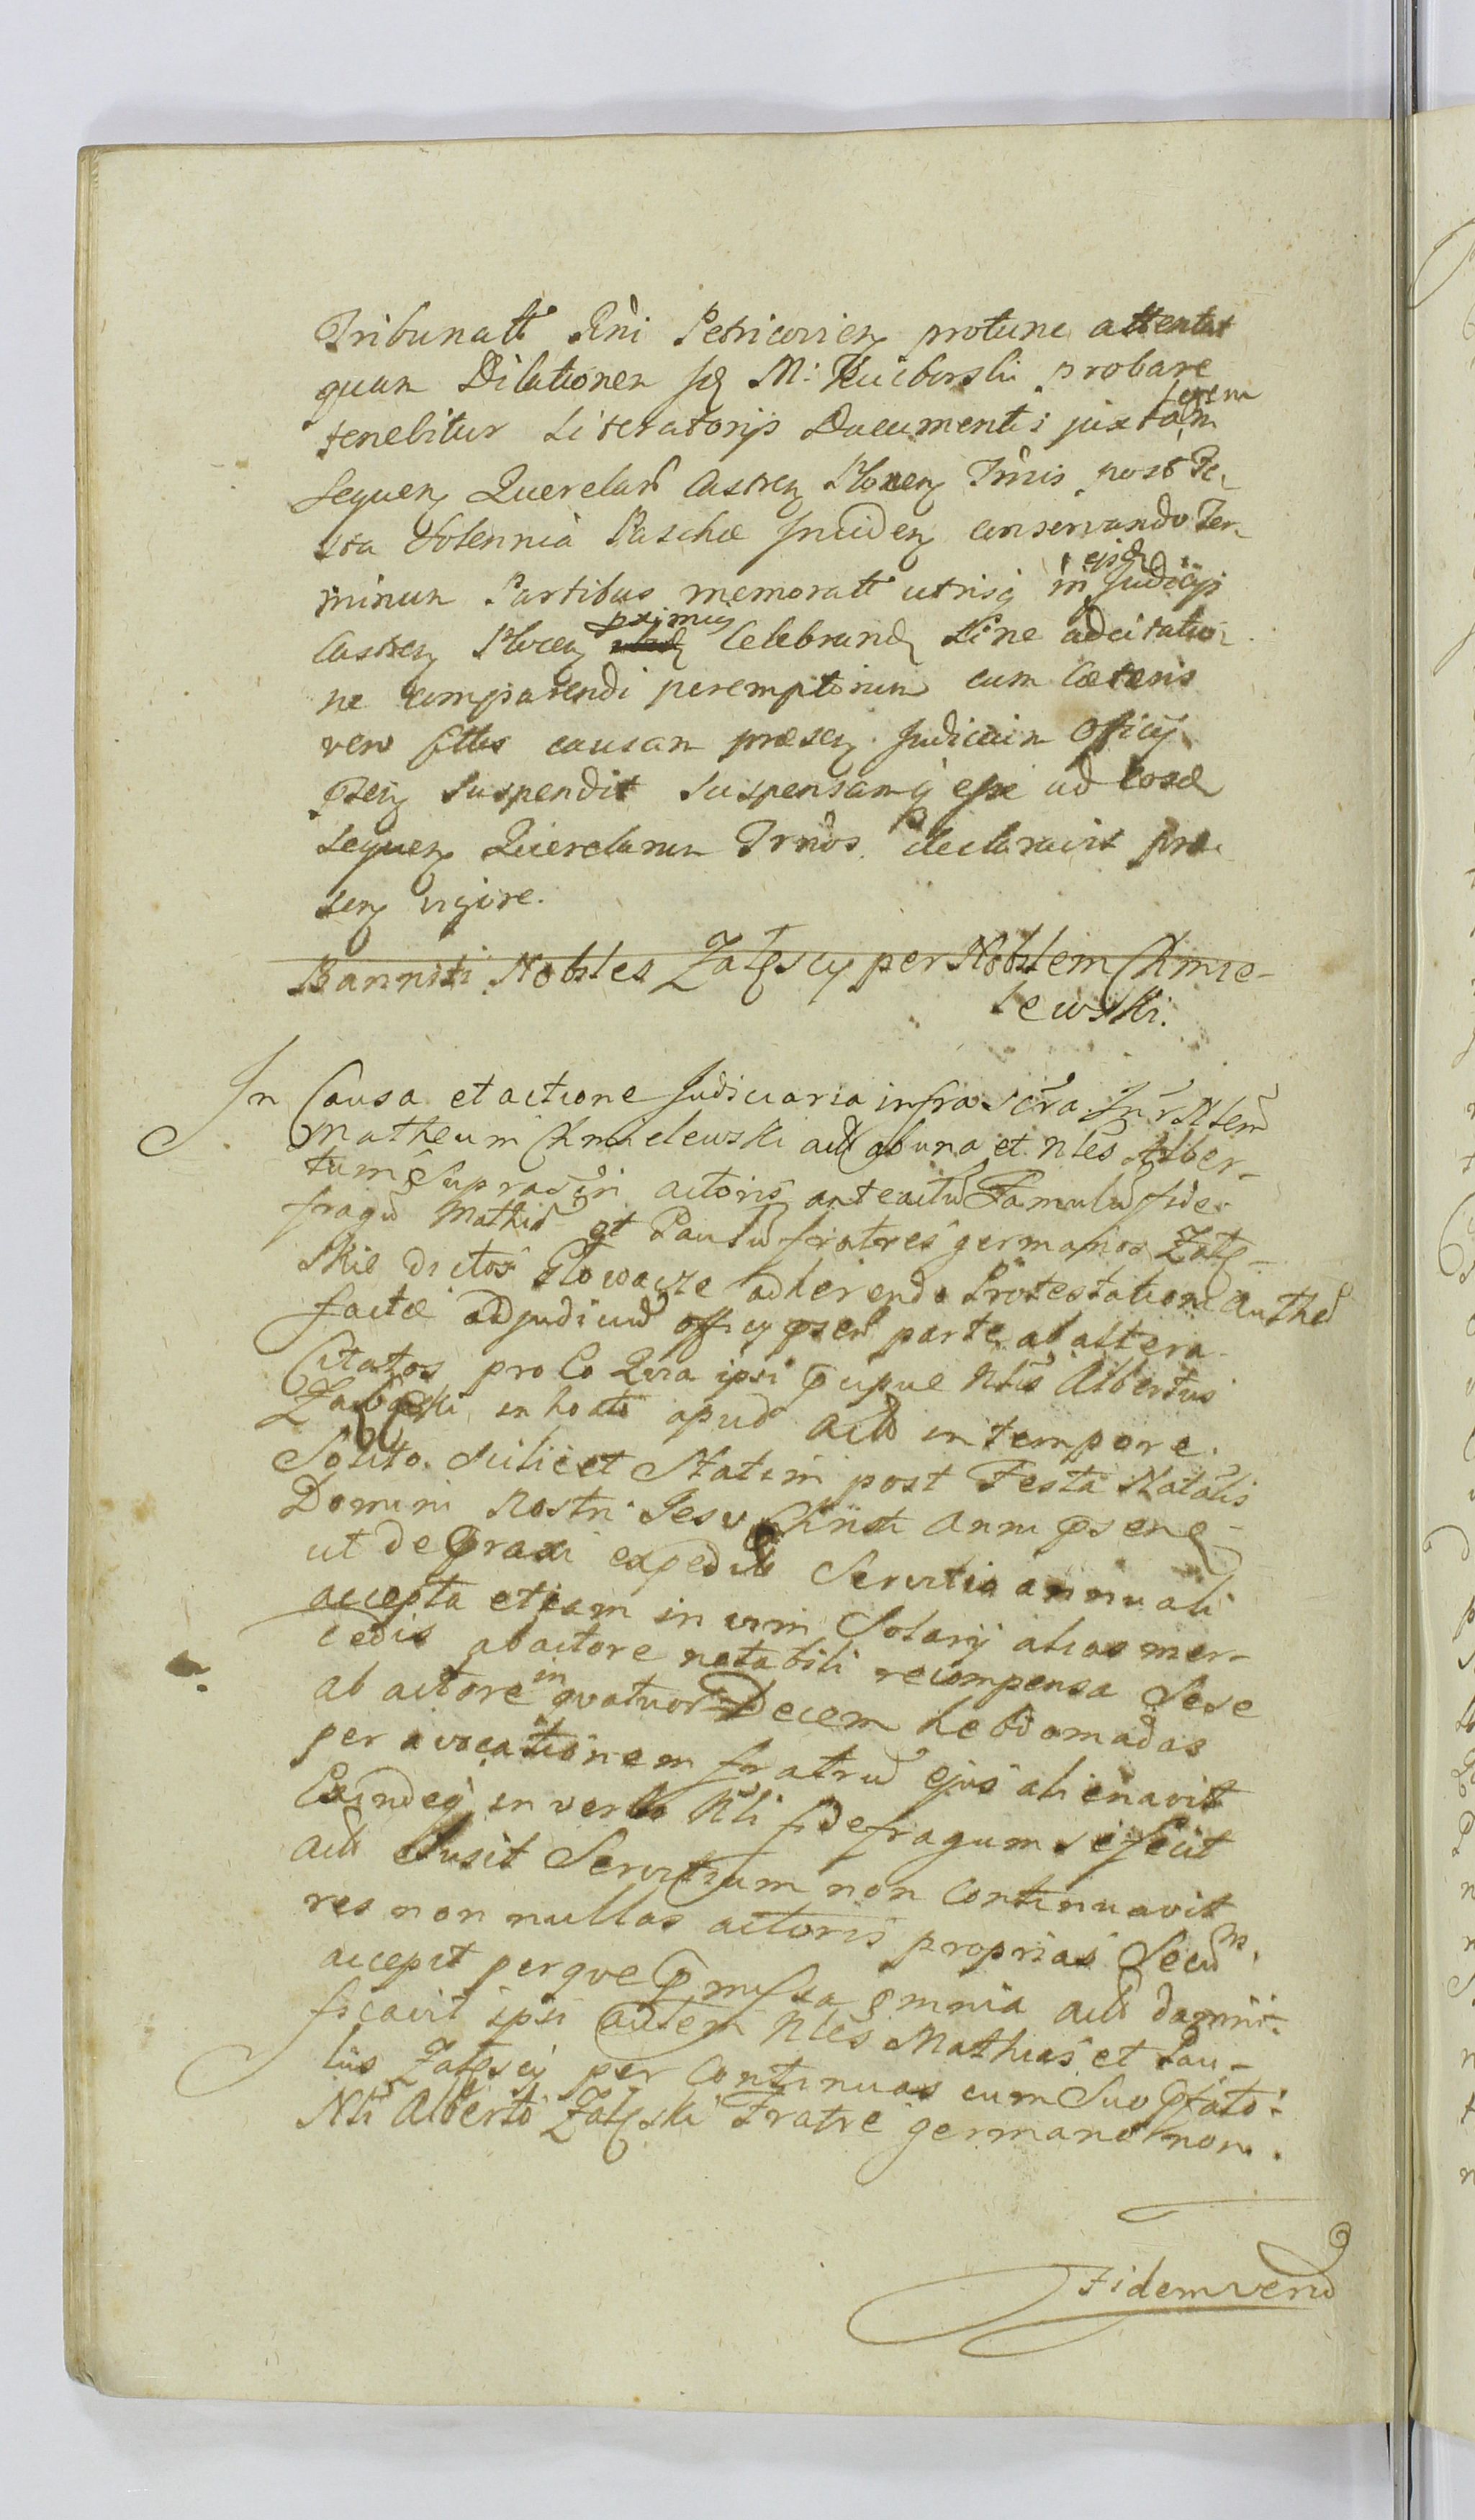 Tribunatt Rni Petricovien protunc attentat
quam Dilationem M: Kuciborski probare
tenebitur Literatorijs Documentis juxtam
tenem
sequen Querelarũ Castren Plocen Trnis post Fe-
sta Solennia Paschæ Inciden conservando Ter-
minum Partibus memoratt utrisq in ejsd Judicijs
Castren Plocen pximis Celebrand sine adcitatio-
ne comparendi peremptorium cum Cæteris
vero Cittis causam præsen Judicium Officij
psen suspendit suspensamq esse ad eosd
sequen Querelarum Trnos declaravit præ-
sen vigore.
Banniti Nobiles Zalęscy per Nobilem Chmie-
lewski.
In Causa et actione Judiciaria infra scra Intr Nlem
Matheum Chmielewski act ab una et Nles Alber-
tum supra scri actoris anteactũ Famulũ fide-
fragũ Mathiã et Paulũ fratres germanos Zalę-
skie dictos Głowacze adherendo Protestationi authẽ
factæ ad judiciũ officij psen parte ab altera
Citatos pro Eo Quia ipsi pcipue Nlis Albertus
Zalęski inhoato apud act in tempore
Solito scilicet Statim post Festa Natalis
Domini Nostri Jesu Christi anni psen
ut de praxi expedit Servitio annuali
accepta etiam in vim Solarij alias mer-
cedis ab actore notabili recompensa Sese
ab actore in quatuor Decem hebdomadas
per avocationem fratrũ ejus alienavit
Exindeq in verbo Nli fidefragum se fecit
act elusit Servitium non Continuavit
res non nullas actoris proprias Secũ
accepit perque pmissa omnia act damni-
ficavit ipsi autem Nles Mathias et Pau-
lus Zalęscij per Continuas cum Suo pfato
Nli Alberto Zalęski Fratre germano non
Fidemvend